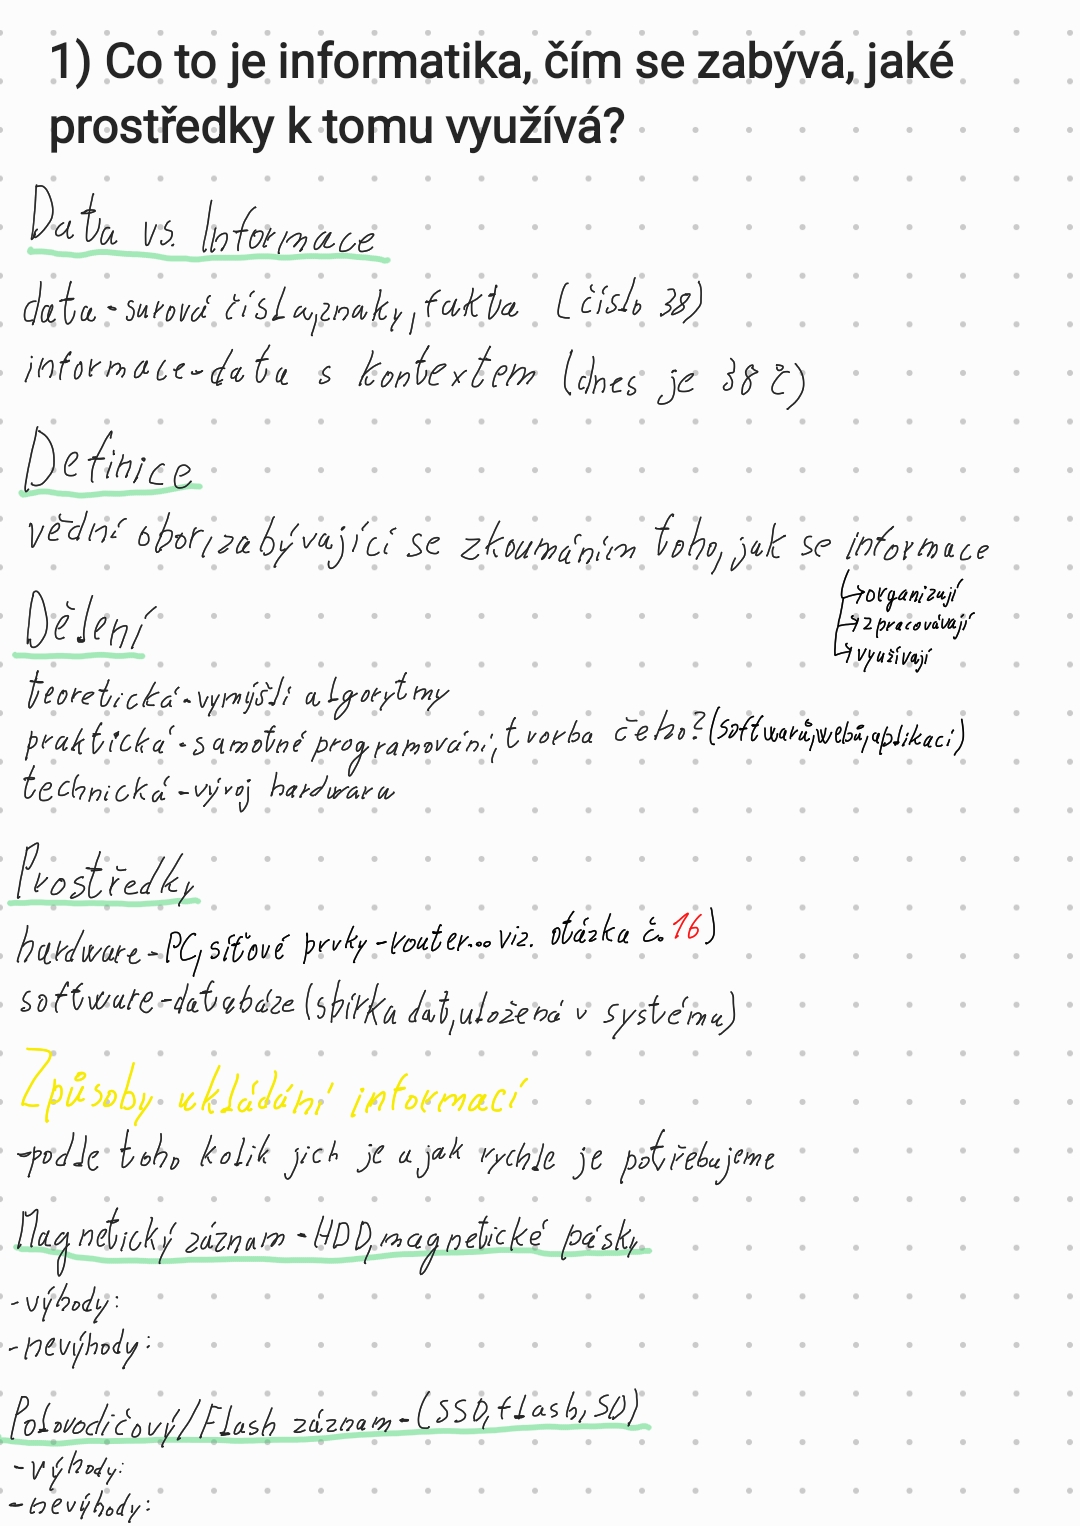 1) Co to je informatika, čím se zabývá, jaké
prostředky k tomu využívá?
Data vs. Informace
data-surová čísla,znaky,fakta (číslo 38)
informace-data s kontextem (dnes je 38 °C)
Definice
vědní obor,zabývající se zkoumáním toho,jak se informace
→organizují
→zpracovávají
→využívají
Dělení
teoretická-vymýšlí algorytmy
praktická-samotné programování,tvorba čeho?(softwarů,webů,aplikací)
technická-vývoj hardwaru
Prostředky
hardware-PC,síťové prvky-router...viz. otázka č.16)
software-databáze(sbírka dat,uložená v systému)
Způsoby ukládání informací
-podle toho kolik jich je a jak rychle je potřebujeme
Magnetický záznam-HDD,magnetické pásky
-výhody:
-nevýhody:
Polovodičový/Flash záznam-(SSD,flash,SD)
-výhody:
-nevýhody: